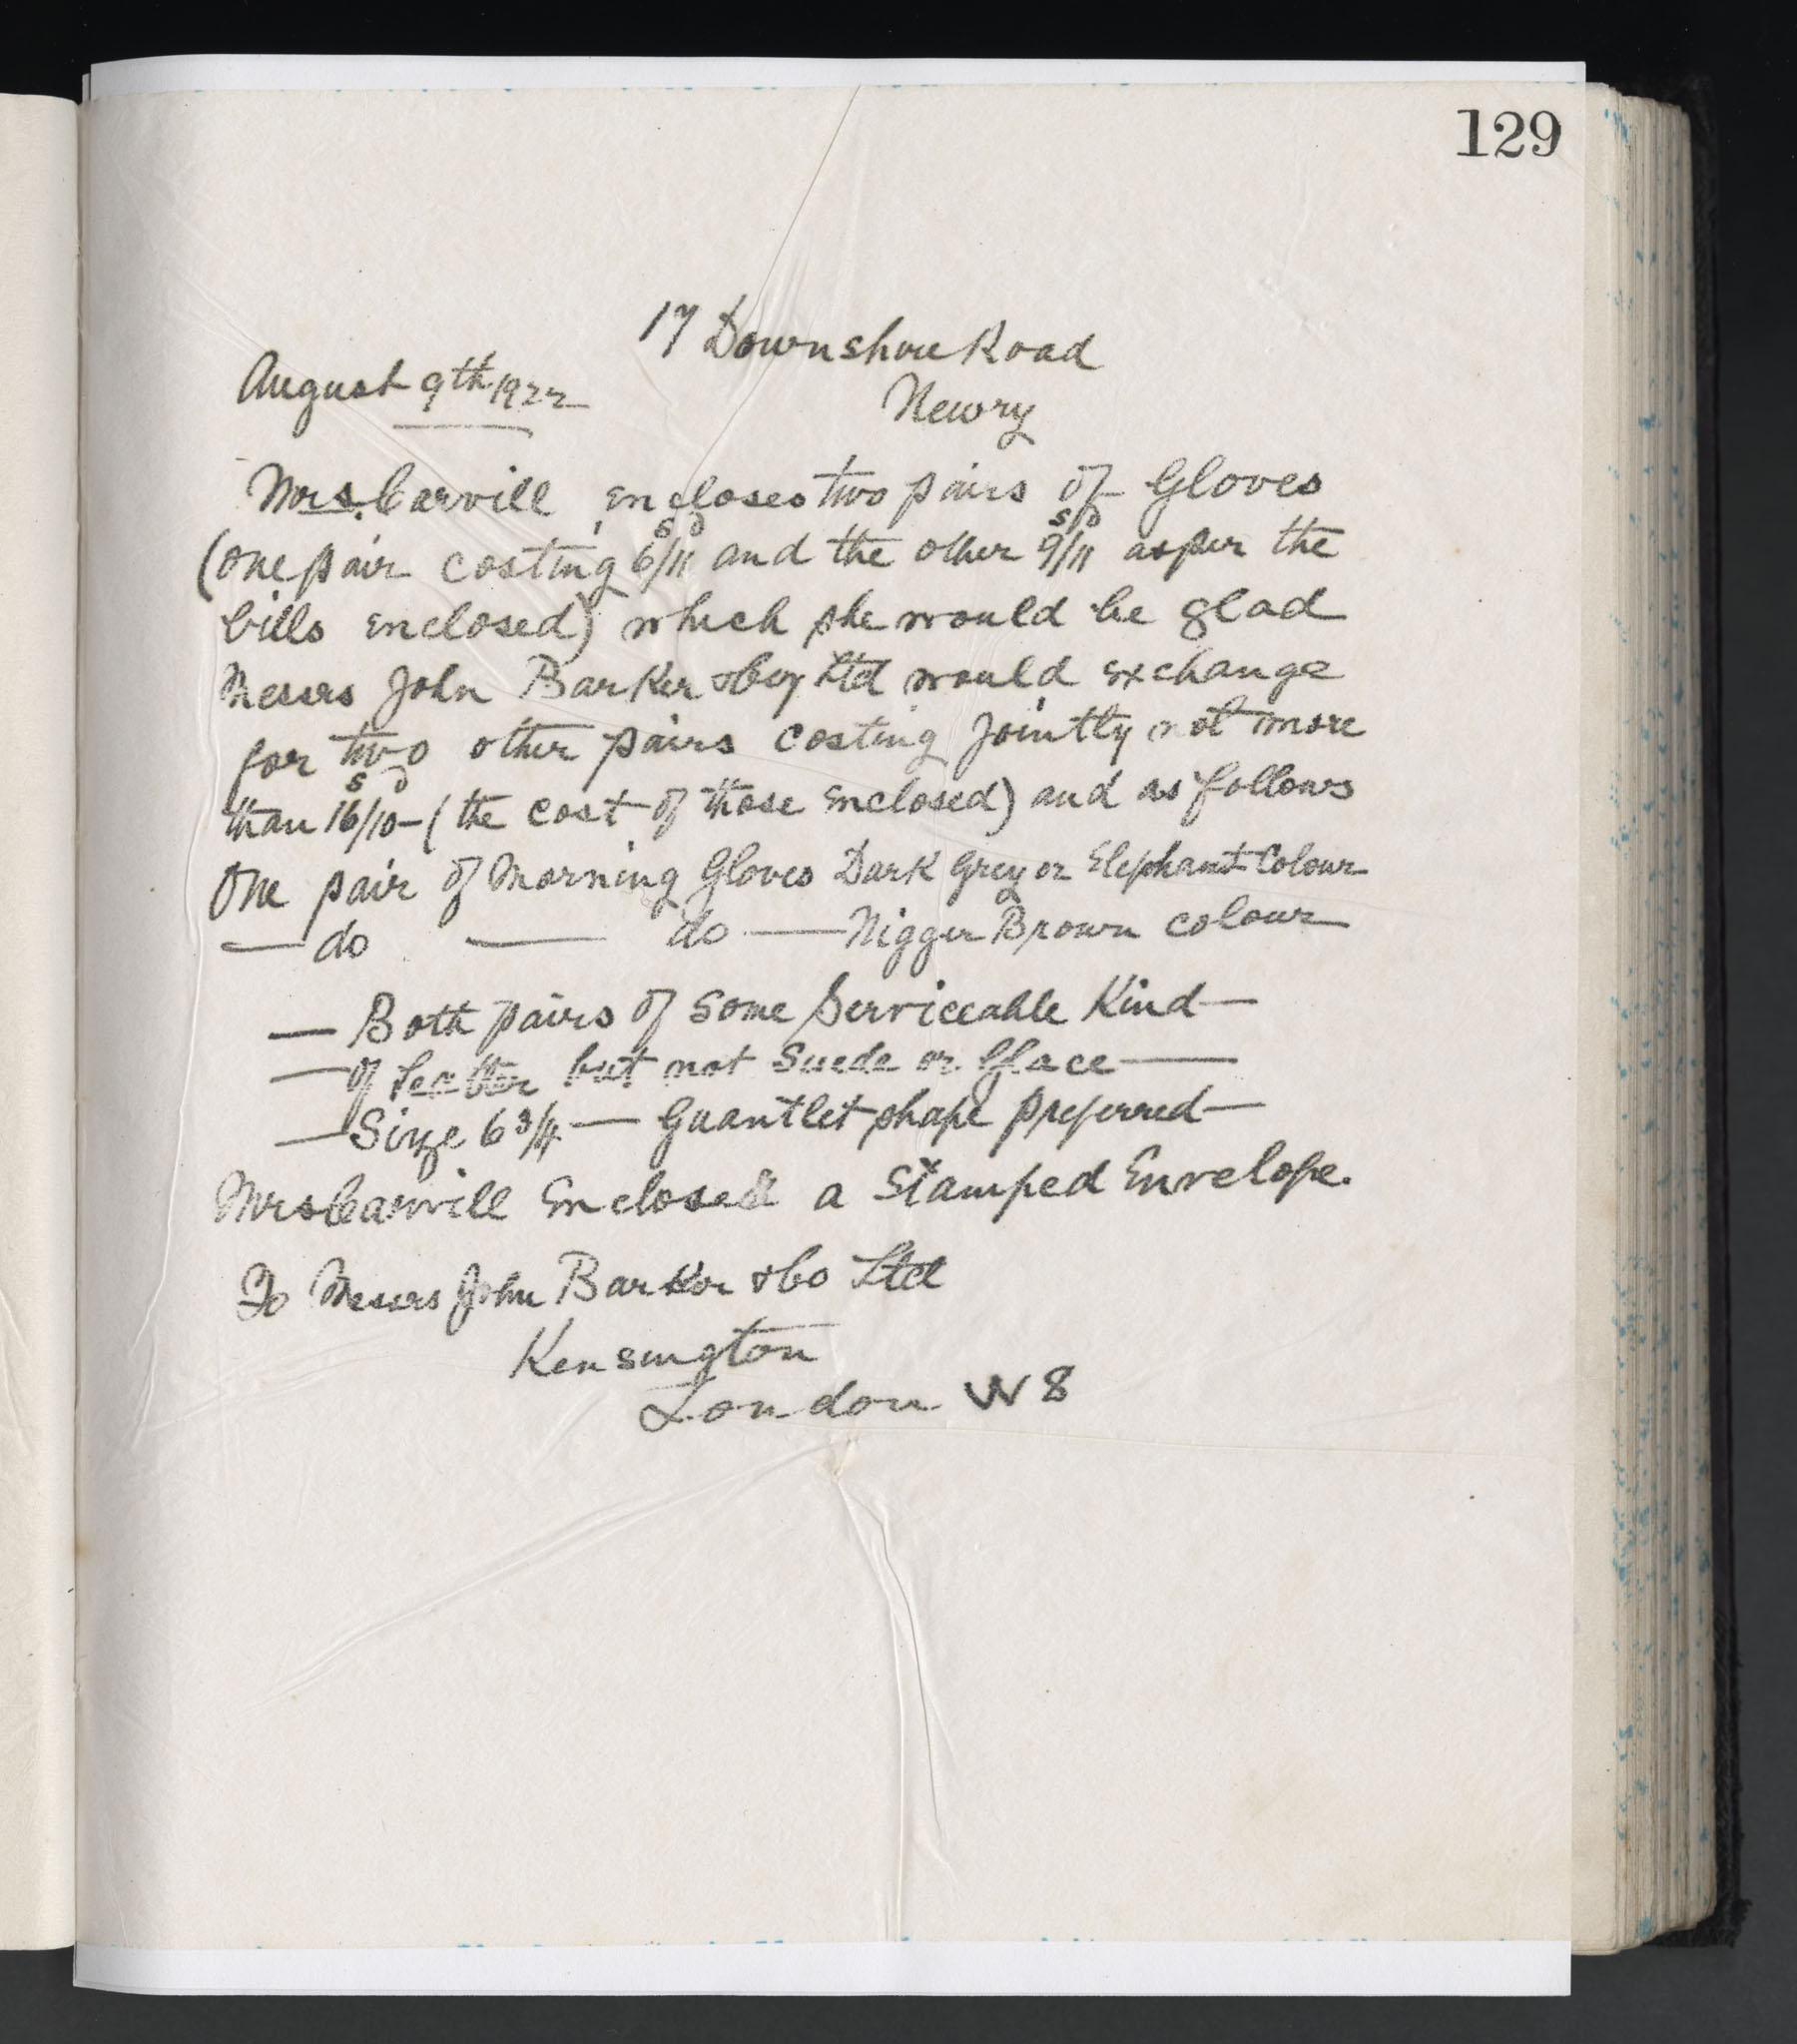 129
17 Downshire Road
August 9th 1922
Newry
Mrs. Carvill encloses two pairs of Gloves
(one pair costing 6s/11d and the other 9s/11d as per the
bills enclosed) which she would be glad
Messrs John Barker & Coy Ltd would exchange
for two other pairs costing jointly not more
than 16s/10d – (the cost of those enclosed) and as follows
One pair of Morning Gloves Dark Grey or Elephant Colour
— do — do — Nigger Brown colour
— Both pairs of some Serviceable Kind —
— of Leather but not Suede or Glace —
— Size 6 3/4 — Guantlet shape preferred —
Mrs Carvill Enclosed a Stamped Envelope.
To Messrs John Barker & Co Ltd
Kensington
London W 8